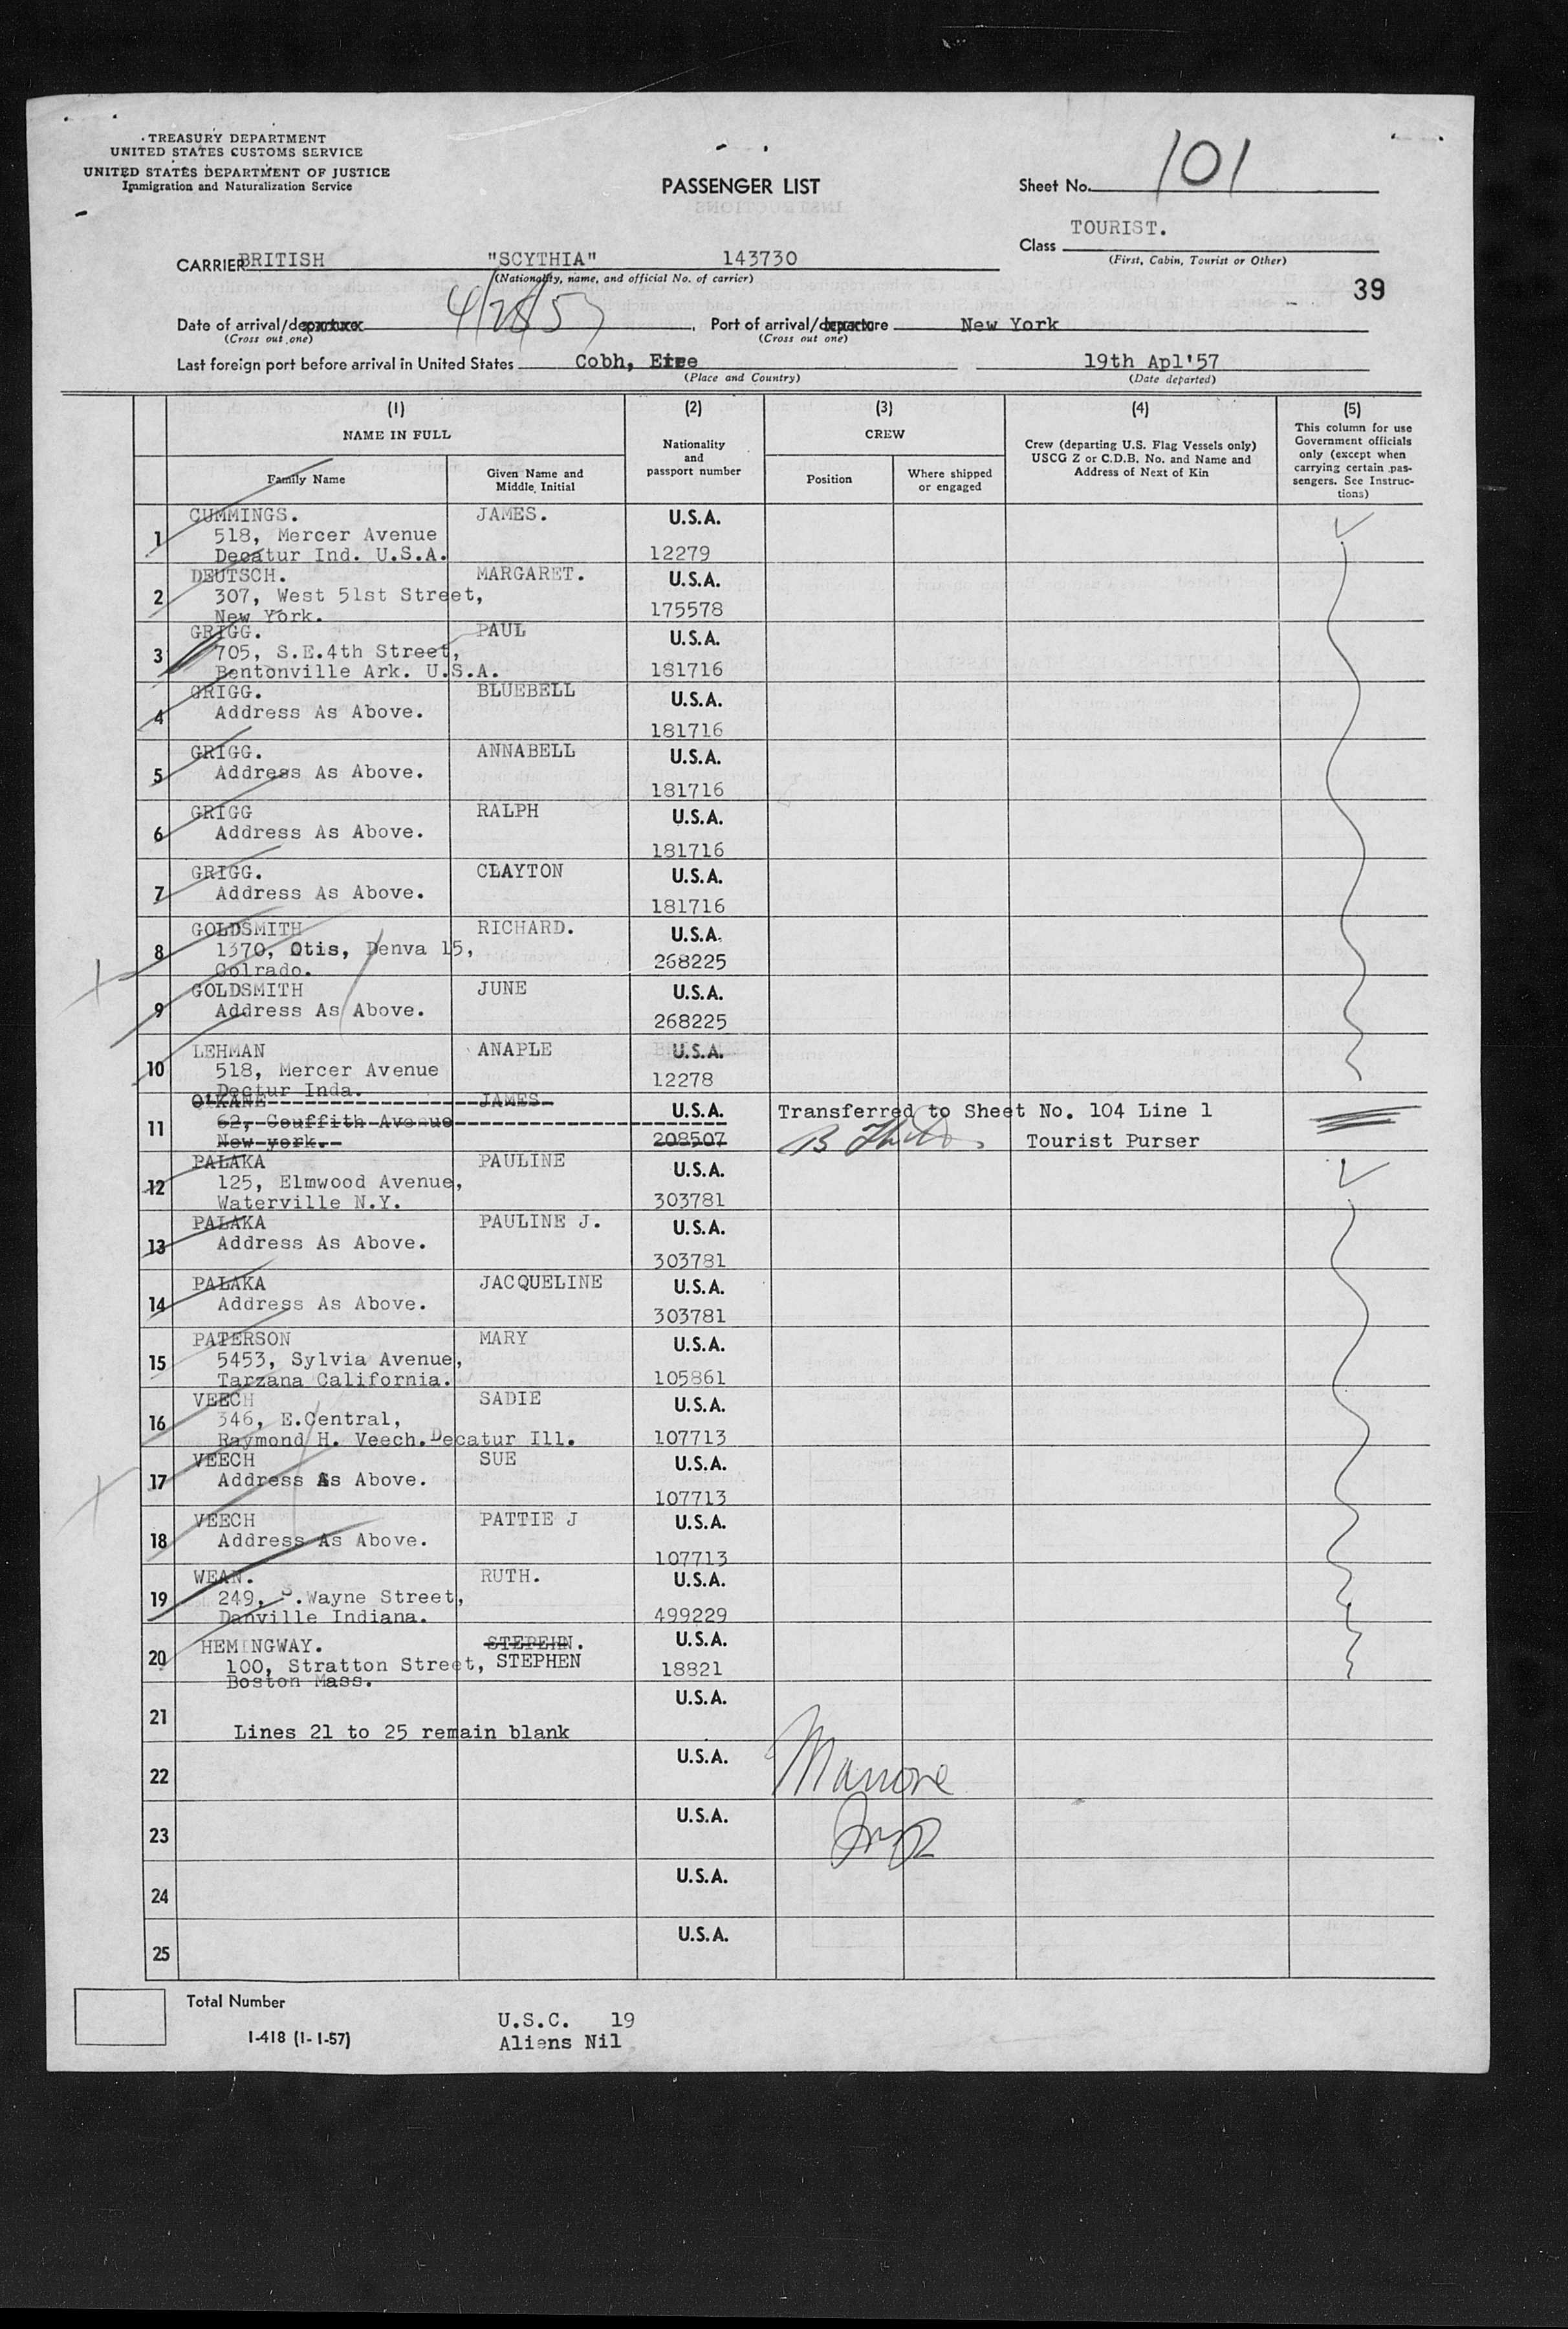 TREASURY DEPARTMENT
UNITED STATES CUSTOMS SERVICE
UNITED STATES DEPARTMENT OF JUSTICE
Immigration and Naturalization Service
PASSENGER LIST
Sheet No. 101
Class TOURIST.
(First, Cabin, Tourist or Other)
CARRIER BRITISH "SCYTHIA" 143730
(Nationality, name, and official No. of carrier)
39
Date of arrival/departure 4/28/57, Port of arrival/departure New York
(Cross out one) (Cross out one)
Last foreign port before arrival in United States Cobh, Eire 19th Apl'57
(Place and Country) (Date departed)
(1) (2) (3) (4) (5)
NAME IN FULL
Family Name
Given Name and Middle Initial
Nationality and passport number
CREW
Position
Where shipped or engaged
Crew (departing U.S. Flag Vessels only) USCG Z or C.D.B. No. and Name and Address of Next of Kin
This column for use Government officials only (except when carrying certain passengers. See Instructions)
1 CUMMINGS. JAMES. U.S.A.
518, Mercer Avenue
Decatur Ind. U.S.A. 12279
2 DEUTSCH. MARGARET. U.S.A.
307, West 51st Street,
New York. 175578
3 GRIGG. PAUL U.S.A.
705, S.E.4th Street,
Bentonville Ark. U.S.A. 181716
4 GRIGG. BLUEBELL U.S.A.
Address As Above. 181716
5 GRIGG. ANNABELL U.S.A.
Address As Above. 181716
6 GRIGG RALPH U.S.A.
Address As Above. 181716
7 GRIGG. CLAYTON U.S.A.
Address As Above. 181716
8 GOLDSMITH RICHARD. U.S.A.
1370, Otis, Denva 15,
Colrado. 268225
9 GOLDSMITH JUNE U.S.A.
Address As Above. 268225
10 LEHMAN ANAPLE U.S.A.
518, Mercer Avenue
Dectur Inda. 12278
11 O'KANE JAMES U.S.A. Transferred to Sheet No. 104 Line 1
62, Couffith Avenue
New york. 208507 Tourist Purser
12 PALAKA PAULINE U.S.A.
125, Elmwood Avenue,
Waterville N.Y. 303781
13 PALAKA PAULINE J. U.S.A.
Address As Above. 303781
14 PALAKA JACQUELINE U.S.A.
Address As Above. 303781
15 PATERSON MARY U.S.A.
5453, Sylvia Avenue,
Tarzana California. 105861
16 VEECH SADIE U.S.A.
346, E.Central,
Raymond H. Veech. Decatur Ill. 107713
17 VEECH SUE U.S.A.
Address As Above. 107713
18 VEECH PATTIE J U.S.A.
Address As Above. 107713
19 WEAN. RUTH. U.S.A.
249, S.Wayne Street,
Danville Indiana. 499229
20 HEMINGWAY. STEPEHN. U.S.A.
100, Stratton Street, STEPHEN 18821
Boston Mass.
21 U.S.A.
Lines 21 to 25 remain blank
22 U.S.A.
23 U.S.A.
24 U.S.A.
25 U.S.A.
Total Number
I-418 (1-1-57)
U.S.C. 19
Aliens Nil